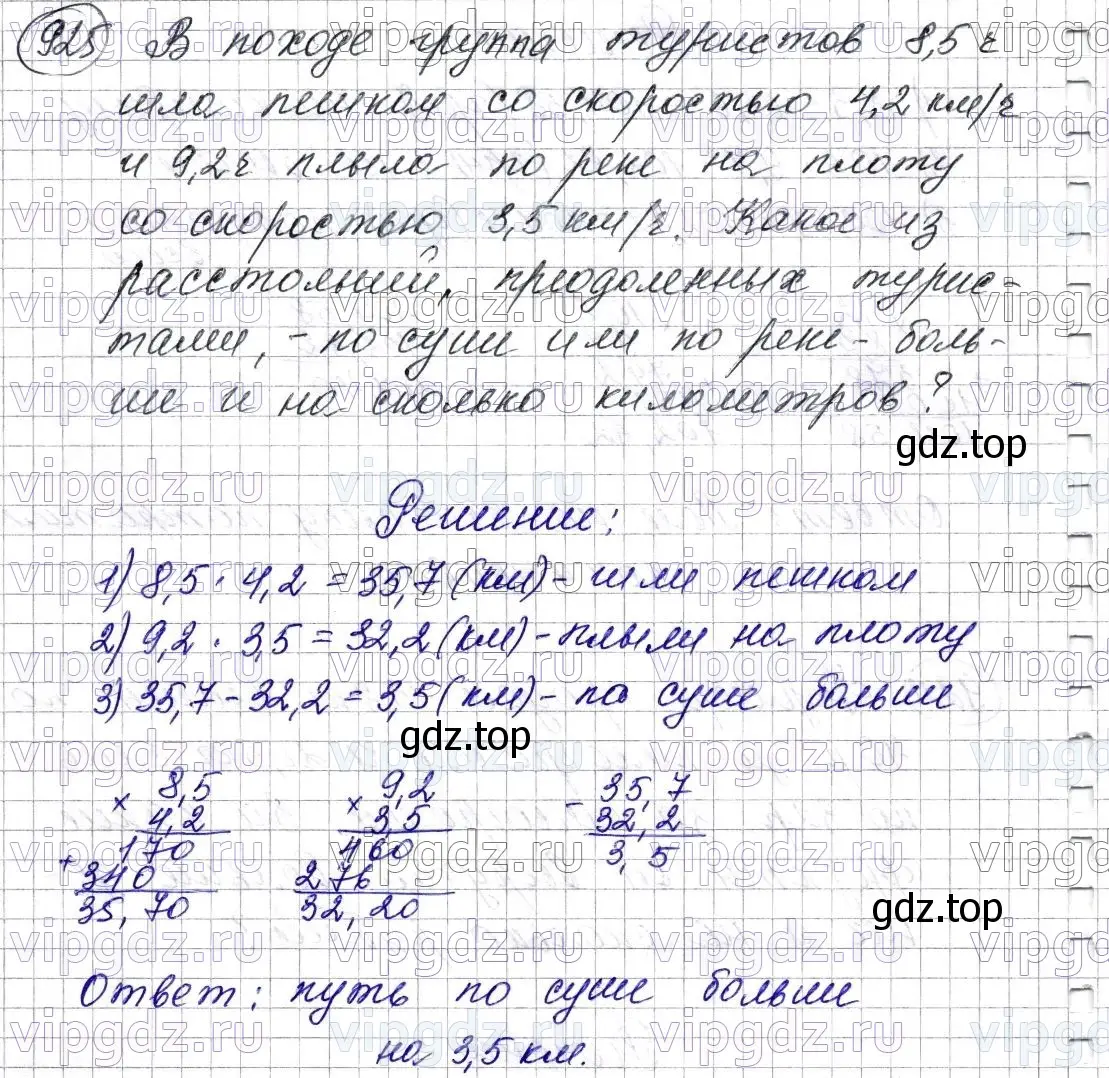 925 В походе группа туристов 8,5 ч
шла пешком со скоростью 4,2 км/ч
и 9,2 ч плыла по реке на плоту
со скоростью 3,5 км/ч. Какое из
расстояний, преодоленных турис-
тами, - по суши или по реке - боль-
ше и на сколько километров?
gdz.top
Решение:
1) 8,5 · 4,2 = 35,7 (км) - шли пешком
2) 9,2 · 3,5 = 32,2 (км) - плыли на плоту
3) 35,7 - 32,2 = 3,5 (км) - по суше больше
gdz.top
× 8,5
4,2
+ 170
340
35,70
× 9,2
3,5
460
276
32,20
- 35,7
32,2
3,5
gdz.top
Ответ: путь по суше больше
на 3,5 км.
vipgdz.ru